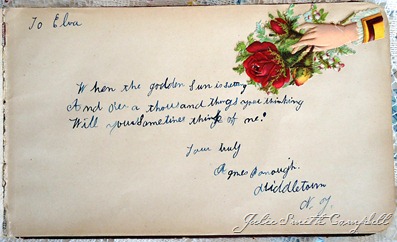 To Elva
When the godden Sun is setting
And over a thousand things your thinking
Will you Sometimes think of me!
Your truly
Agnes Donough.
Middletown
N. Y.
Julie Smith Campbell